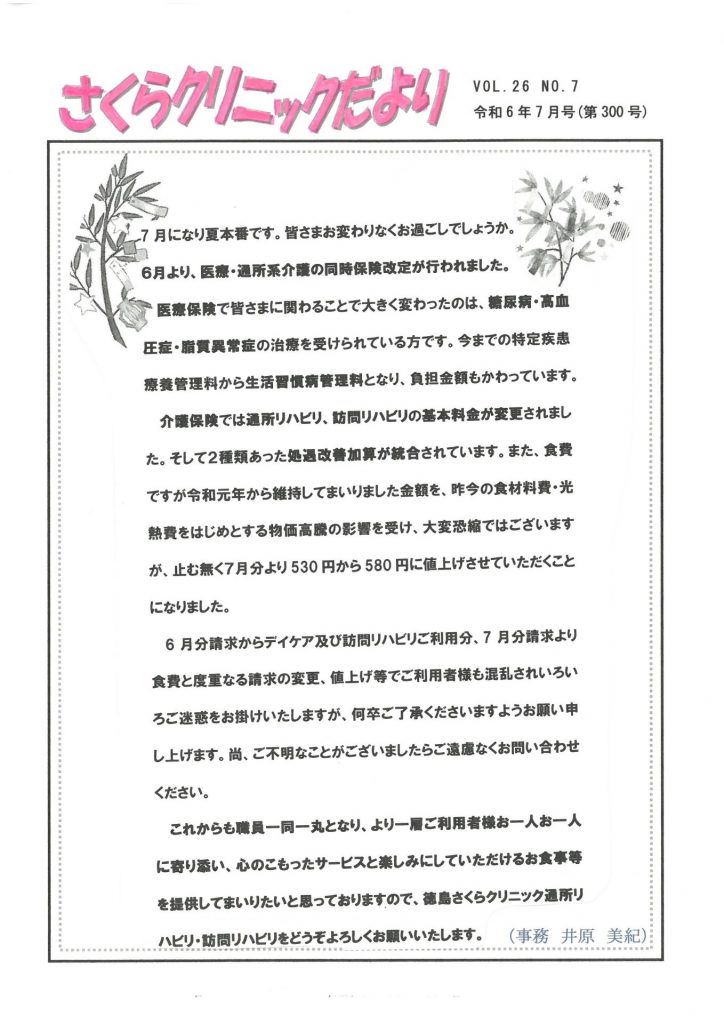 さくらクリニックだより
VOL.26 NO.7
令和6年7月号(第300号)
7月になり夏本番です。皆さまお変わりなくお過ごしでしょうか。
6月より、医療・通所系介護の同時保険改定が行われました。
医療保険で皆さまに関わることで大きく変わったのは、糖尿病・高血
圧症・脂質異常症の治療を受けられている方です。今までの特定疾患
療養管理料から生活習慣病管理料となり、負担金額もかわっています。
介護保険では通所リハビリ、訪問リハビリの基本料金が変更されまし
た。そして2種類あった処遇改善加算が統合されています。また、食費
ですが令和元年から維持してまいりました金額を、昨今の食材料費・光
熱費をはじめとする物価高騰の影響を受け、大変恐縮ではございます
が、止む無く7月分より530円から580円に値上げさせていただくこと
になりました。
6月分請求からデイケア及び訪問リハビリご利用分、7月分請求より
食費と度重なる請求の変更、値上げ等でご利用者様も混乱されいろい
ろご迷惑をお掛けいたしますが、何卒ご了承くださいますようお願い申
し上げます。尚、ご不明なことがございましたらご遠慮なくお問い合わせ
ください。
これからも職員一同一丸となり、より一層ご利用者様お一人お一人
に寄り添い、心のこもったサービスと楽しみにしていただけるお食事等
を提供してまいりたいと思っておりますので、徳島さくらクリニック通所リ
ハビリ・訪問リハビリをどうぞよろしくお願いいたします。 (事務 井原 美紀)